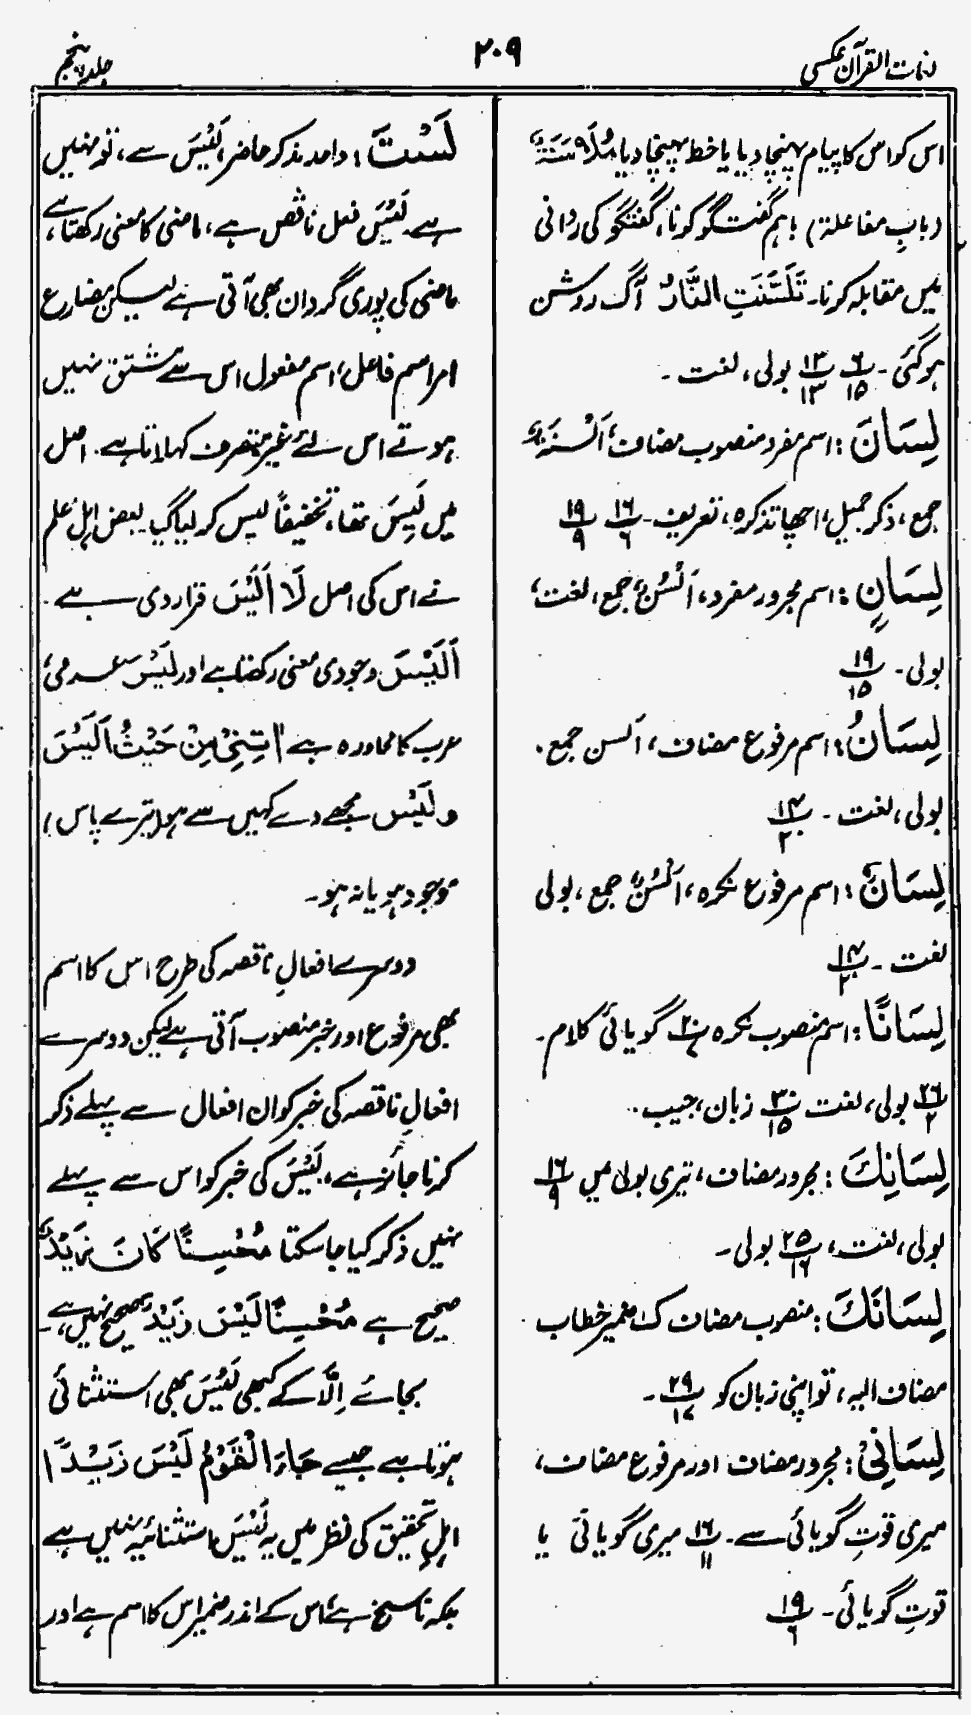 لغات القرآن عکسی
۲۰۹
جلد پنجم
اس کو اس کا پیام پہنچا دیا یا خط پہنچا دیا مُلَاسَنَۃٌ
(بابِ مفاعلۃ) باہم گفت گو کرنا، گفتگو کی روانی
میں مقابلہ کرنا۔ تَلَسَّنَتِ النَّارُ آگ روشن
ہوگئی۔ ۶/۱۵ ۱۳/۱۳ بولی، لغت۔
لِسَانَ: اسم مفرد منصوب مضاف، اَلْسِنَۃٌ
جمع، ذکر جمیل، اچھا تذکرہ، تعریف۔ ۱۶/۶ ۱۹/۹
لِسَانٍ: اسم مجرور مفرد، اَلْسُنٌ جمع، لغت،
بولی۔ ۱۹/۱۵
لِسَانُ: اسم مرفوع مضاف، اَلسن جمع۔
بولی، لغت۔ ۱۴/۲۰
لِسَانٌ: اسم مرفوع نکرہ، اَلْسُنٌ جمع، بولی
لغت۔ ۱۴/۲۰
لِسَانًا: اسم منصوب نکرہ ۲۰/۷ گویائی کلام۔
۲۶/۲ بولی، لغت ۳۰/۱۵ زبان، جیب۔
لِسَانِكَ: مجرور مضاف، تیری بولی میں ۱۶/۹
بولی، لغت، ۲۵/۱۶ بولی۔
لِسَانَكَ: منصوب مضاف ک ضمیر خطاب
مضاف الیہ، تو اپنی زبان کو ۲۹/۱۷۔
لِسَانِیْ: مجرور مضاف اور مرفوع مضاف،
میری قوتِ گویائی سے۔ ۱۶/۱۱ میری گویائی یا
قوتِ گویائی۔ ۱۹/۶
لَسْتَ: واحد مذکر حاضر، لَیْسَ سے، تو نہیں
ہے۔ لَیْسَ فعل ناقص ہے، ماضی کا معنی رکھتا ہے،
ماضی کی پوری گردان بھی آتی ہے لیکن مضارع
امر اسم فاعل، اسم مفعول اس سے مشتق نہیں
ہوتے اس لئے غیر متصرف کہلاتا ہے۔ اصل
میں لَیِسَ تھا، تخفیفاً لیس کر لیا گیا۔ بعض اہل علم
نے اس کی اصل لَا اَلَیْسَ قرار دی ہے۔
اَلَیْسَ وجودی معنی رکھتا ہے اور لَیْسَ عدمی،
عرب کا محاورہ ہے اتِنِیْ مِنْ حَیْثُ اَلَیْسَ
و لَیْسَ مجھے دے کہیں سے ہو (تیرے پاس)
موجود ہو یا نہ ہو۔
دوسرے افعالِ ناقصہ کی طرح اس کا اسم
بھی مرفوع اور خبر منصوب آتی ہے لیکن دوسرے
افعالِ ناقصہ کی خبر کو ان افعال سے پہلے ذکر
کرنا جائز ہے، لَیْسَ کی خبر کو اس سے پہلے
نہیں ذکر کیا جا سکتا مُحْسِنًا کَانَ زَیْدٌ
صحیح ہے مُحْسِنًا لَیْسَ زَیْدٌ صحیح نہیں ہے۔
بجائے اِلَّا کے کبھی لَیْسَ بھی استثنائی
ہوتا ہے جیسے جَاءَ الْقَوْمُ لَیْسَ زَیْدًا
اہلِ تحقیق کی نظر میں یہ لَیْسَ استثنائیہ نہیں ہے
بلکہ ناسخ ہے اس کے اندر ضمیر اس کا اسم ہے اور